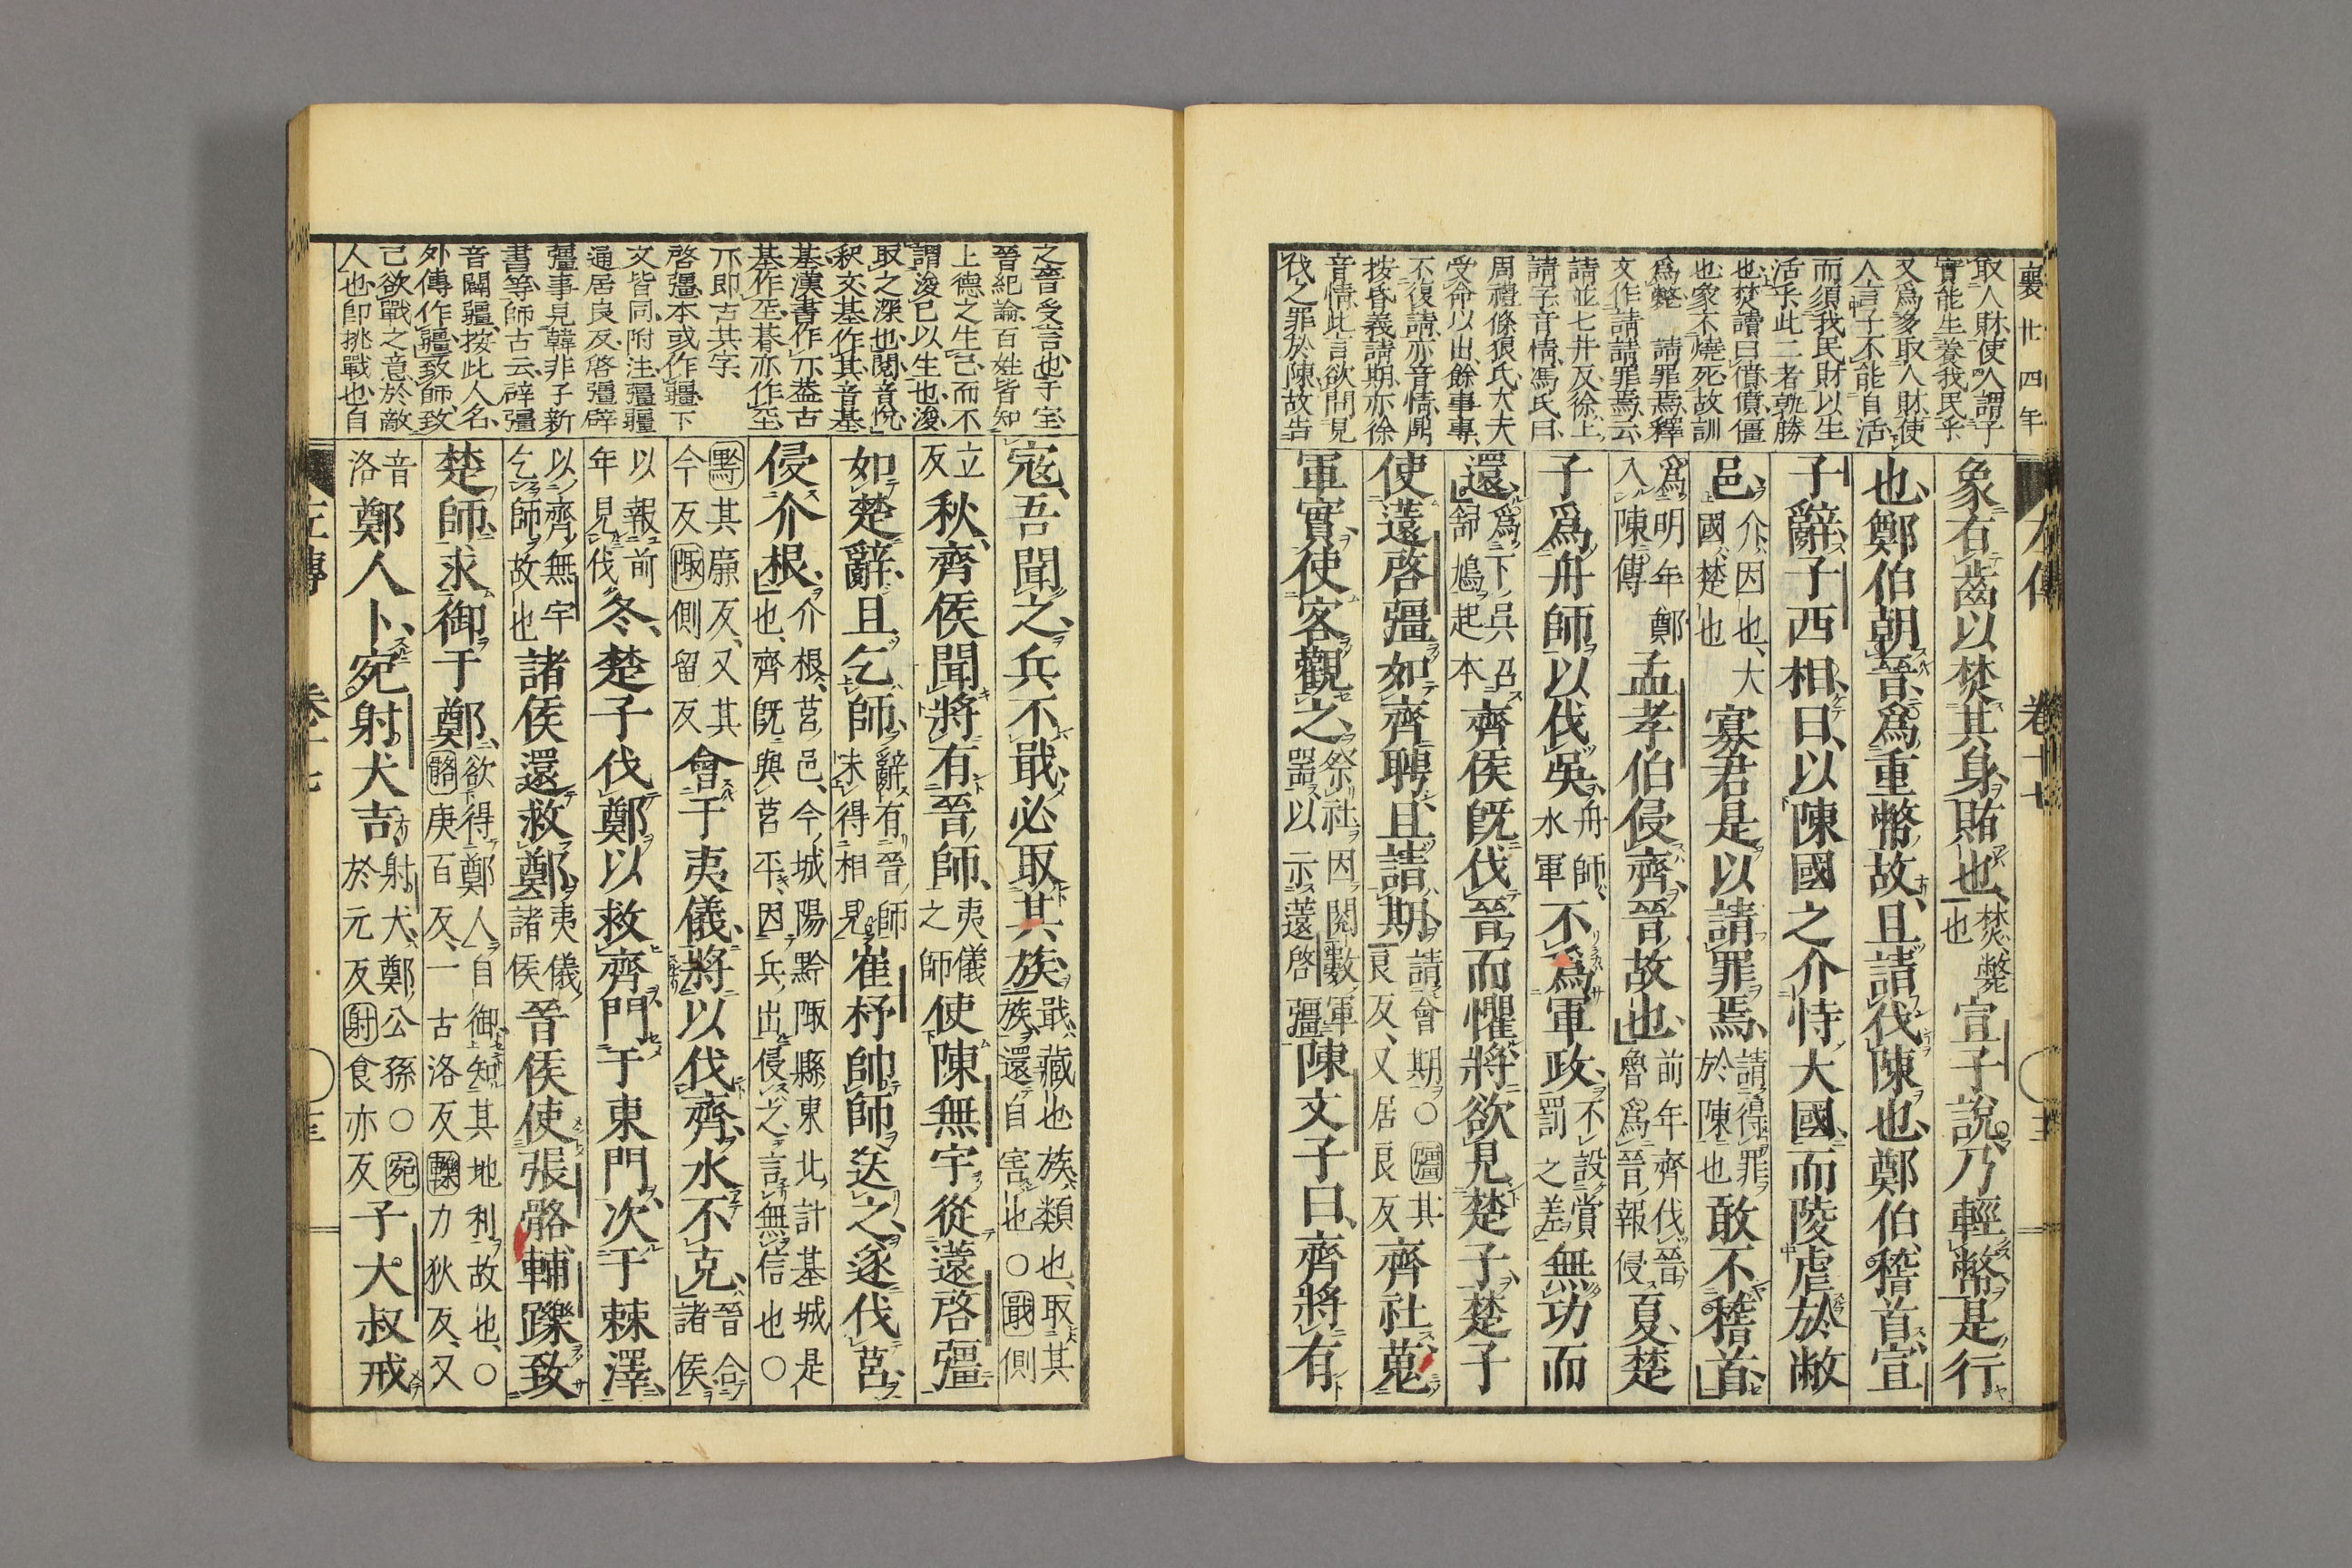 襄廿四年
取人財使人謂子
實能生養我民乎
又爲多取人財使
人言子不能自活
而須我民財以生
活乎此二者孰勝
也焚讀曰僨僨僵
也象不燒死故訓
爲斃　請罪焉釋
文作請請罪焉云
請並七井反徐上
請子音情馮氏曰
周禮條狼氏大夫
受命以出餘事專
不復請亦音情鼎
按昏義請期亦徐
音情此言欲問見
伐之罪於陳故告
左傳　卷十七　三
象有齒以焚其身賄也焚斃也宣子說乃輕幣是行
也鄭伯朝晉爲重幣故且請伐陳也鄭伯稽首宣
子辭子西相曰以陳國之介恃大國而陵虐於敝
邑介因也大國楚也寡君是以請罪焉請得罪於陳也敢不稽首
爲明年鄭入陳傳孟孝伯侵齊晉故也前年齊伐晉魯爲晉報侵夏楚
子爲舟師以伐吳舟師水軍不爲軍政不設賞罰之差無功而
還爲下吳召舒鳩起本齊侯既伐晉而懼將欲見楚子楚子
使薳啓彊如齊聘且請期請會期○彊其良反又居良反齊社蒐
軍實使客觀之祭社因閱數軍器以示薳啓彊陳文子曰齊將有
之晉受言也于宝
晉紀論百姓皆知
上德之生己而不
謂浚己以生也浚
取之深也閱音悅
釈文基作其音基
基漢書作丌蓋古
基作至朞亦作至
丌即古其字
啓彊本或作疆下
文皆同附注彊疆
通居良反啓彊辟
彊事見韓非子新
書等師古云辟彊
音闢疆按此人名
外傳作疆致師致
己欲戰之意於敵
人也卽挑戰也自
寇吾聞之兵不戢必取其族戢藏也族類也取其族還自害也○戢側
立反秋齊侯聞將有晉師夷儀之師使陳無宇從薳啓彊
如楚辭且乞師辭有晉師未得相見崔杼帥師送之遂伐莒
侵介根介根莒邑今城陽黔陬縣東北計基城是也齊既與莒平因兵出侵之言無信也○
黔其廉反又其今反陬側留反會于夷儀將以伐齊水不克晉合諸侯
以報前年見伐冬楚子伐鄭以救齊門于東門次于棘澤
以齊無宇乞師故也諸侯還救鄭夷儀諸侯晉侯使張骼輔躒致
楚師求御于鄭欲得鄭人自御知其地利故也○骼庚百反一古洛反躒力狄反又
音洛鄭人卜宛射犬吉射犬鄭公孫○宛於元反射食亦反子大叔戒
左傳　卷十七　三